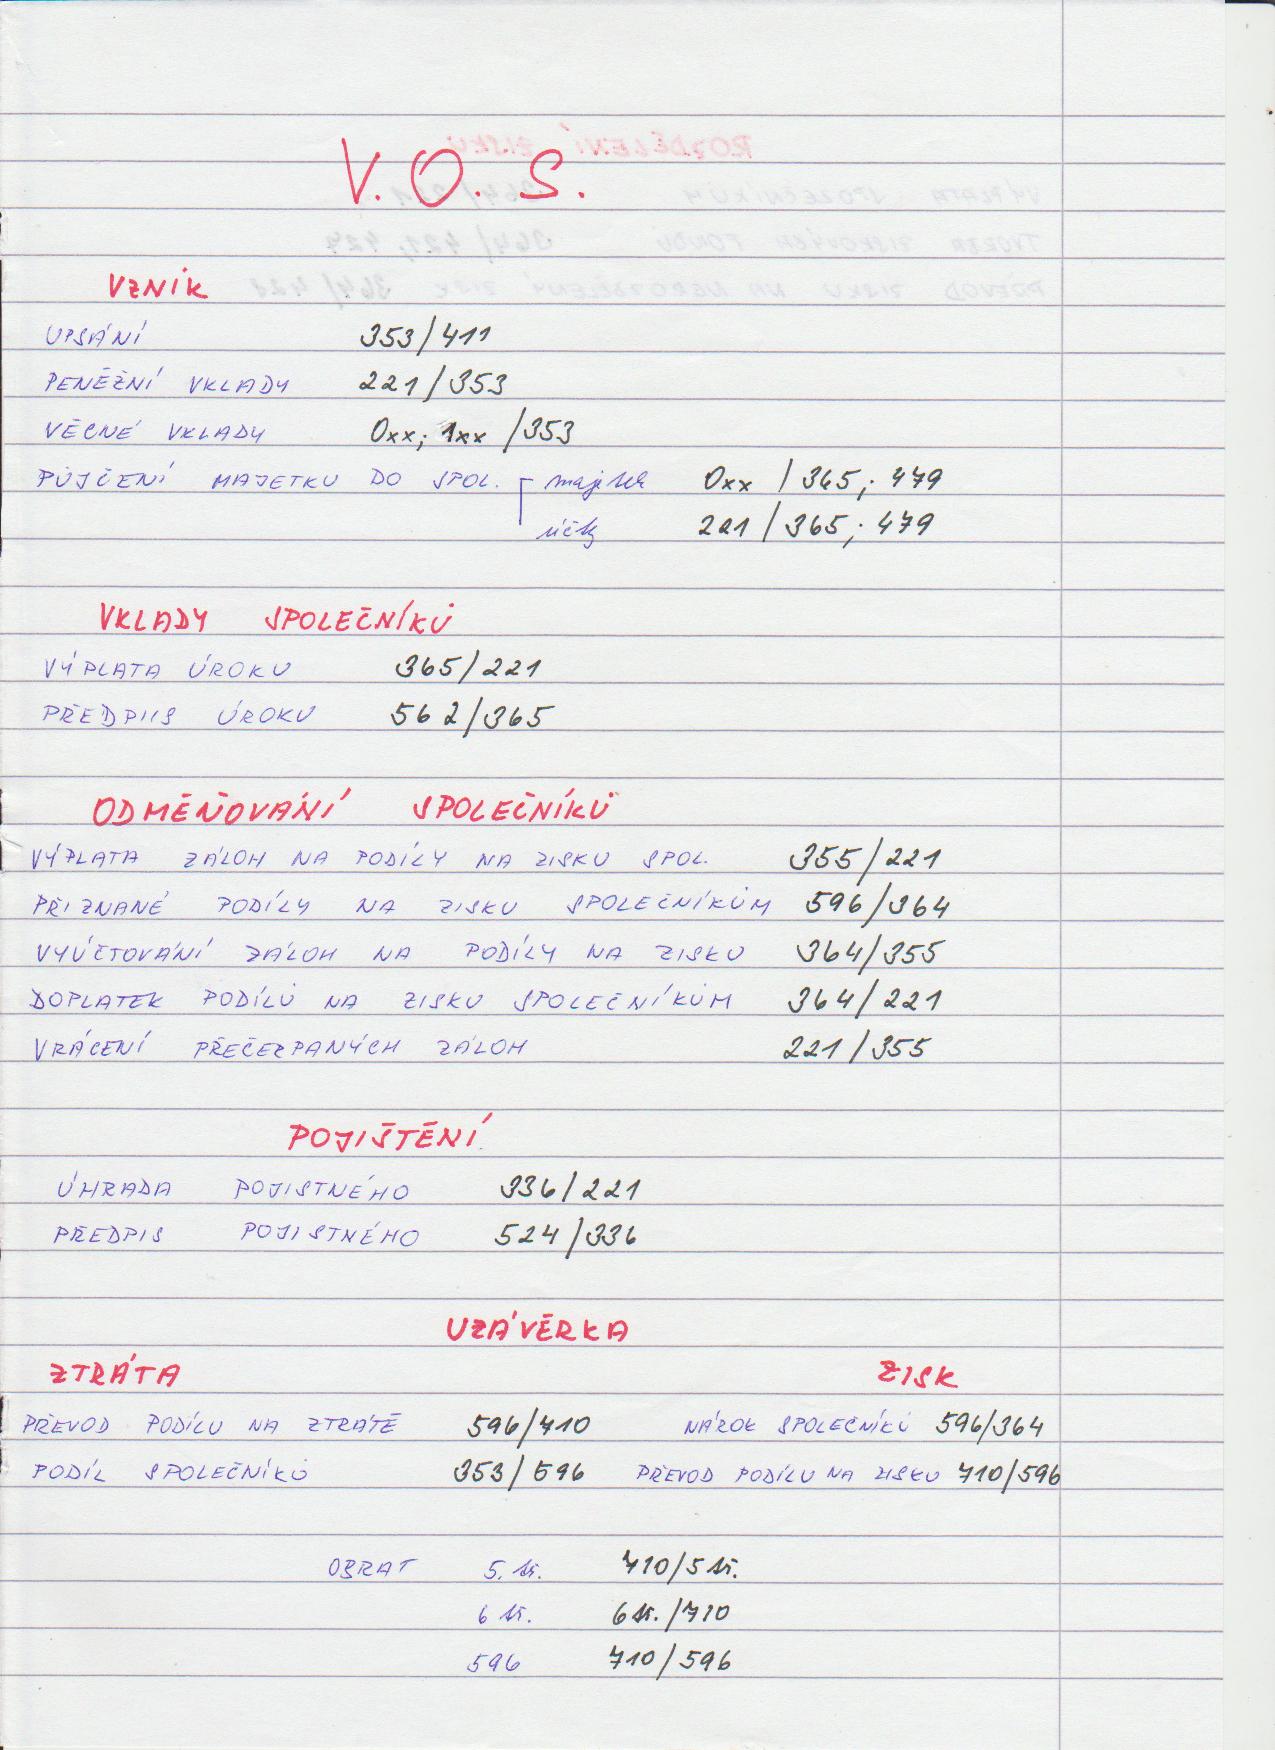 V.O.S.
VZNIK
UPSÁNÍ 353/411
PENĚŽNÍ VKLADY 221/353
VĚCNÉ VKLADY 0xx; 1xx /353
PŮJČENÍ MAJETKU DO SPOL. majetek 0xx / 365; 479
účty 221 / 365; 479
VKLADY SPOLEČNÍKŮ
VÝPLATA ÚROKU 365/221
PŘEDPIIS ÚROKU 562/365
ODMĚŇOVÁNÍ SPOLEČNÍKŮ
VÝPLATA ZÁLOH NA PODÍLY NA ZISKU SPOL. 355/221
PŘIZNANÉ PODÍLY NA ZISKU SPOLEČNÍKŮM 596/364
VYÚČTOVÁNÍ ZÁLOH NA PODÍLY NA ZISKU 364/355
DOPLATEK PODÍLŮ NA ZISKU SPOLEČNÍKŮM 364/221
VRÁCENÍ PŘEČERPANÝCH ZÁLOH 221/355
POJIŠTĚNÍ
ÚHRADA POJISTNÉHO 336/221
PŘEDPIS POJISTNÉHO 524/336
UZÁVĚRKA
ZTRÁTA ZISK
PŘEVOD PODÍLU NA ZTRÁTĚ 596/710 NÁROK SPOLEČNÍKŮ 596/364
PODÍL SPOLEČNÍKŮ 353/596 PŘEVOD PODÍLU NA ZISKU 710/596
OBRAT 5. tř. 710/5 tř.
6 tř. 6 tř./710
596 710/596